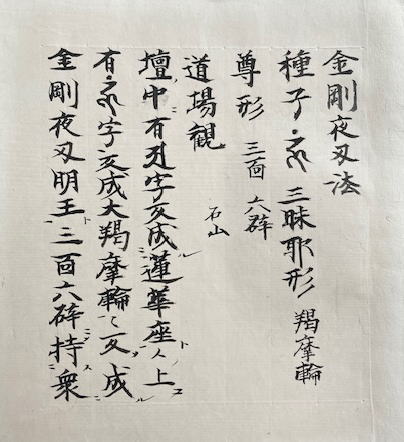 金剛夜叉法
種子 三昧耶形 羯摩輪
尊形 三面 六臂
道場観 石山
壇中有字変成蓮華座〻上
有字変成大羯摩輪〻変成
金剛夜叉明王三面六臂持衆